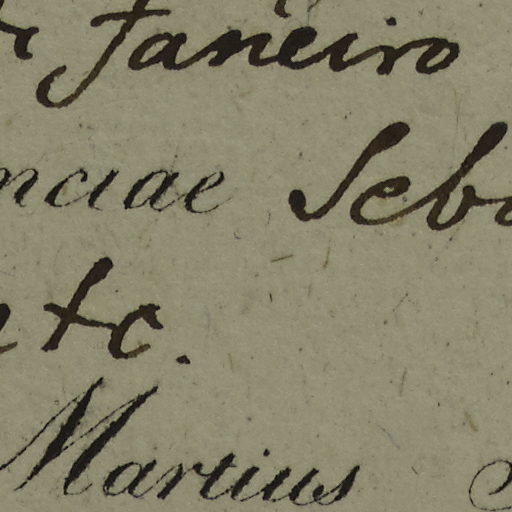 Janeiro
nciae Seb
etc.
Martius